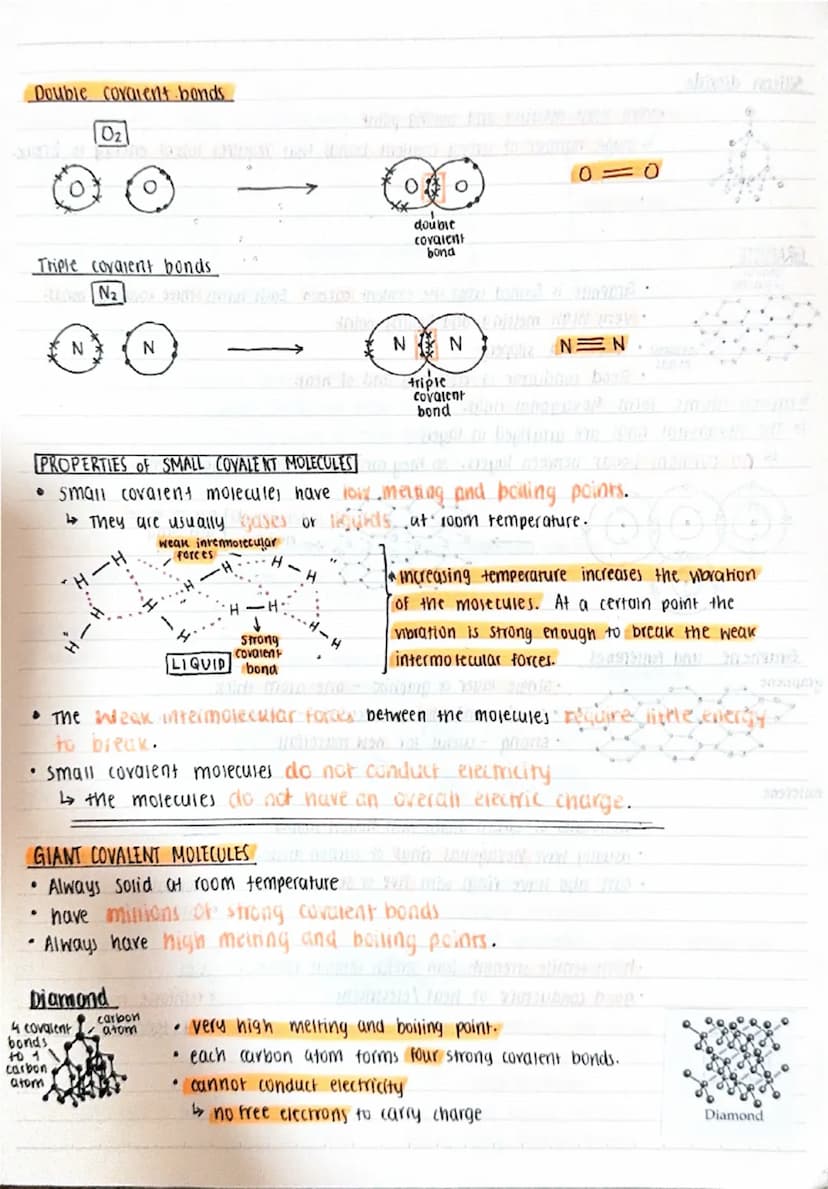 Double covalent bonds
O₂
O O O O O = O
double
covalent
bond
Triple covalent bonds
N₂
N N N N N ≡ N
triple
covalent
bond
PROPERTIES of SMALL COVALENT MOLECULES
• small covalent molecules have low melting and boiling points.
↳ They are usually gases or liquids at room temperature.
weak intermolecular
forces
H — H
H — H
H — H
H — H
H — H
H — H
H — H
strong
covalent
bond
LIQUID
* increasing temperature increases the vibration
of the molecules. At a certain point the
vibration is strong enough to break the weak
intermolecular forces.
• The weak intermolecular forces between the molecules require little energy
to break.
• small covalent molecules do not conduct electricity
↳ the molecules do not have an overall electric charge.
GIANT COVALENT MOLECULES
• Always solid at room temperature
• have millions of strong covalent bonds
• Always have high melting and boiling points.
Diamond
4 covalent
bonds
to 1
carbon
atom
carbon
atom
• very high melting and boiling point.
• each carbon atom forms four strong covalent bonds.
• cannot conduct electricity
↳ no free electrons to carry charge
Diamond